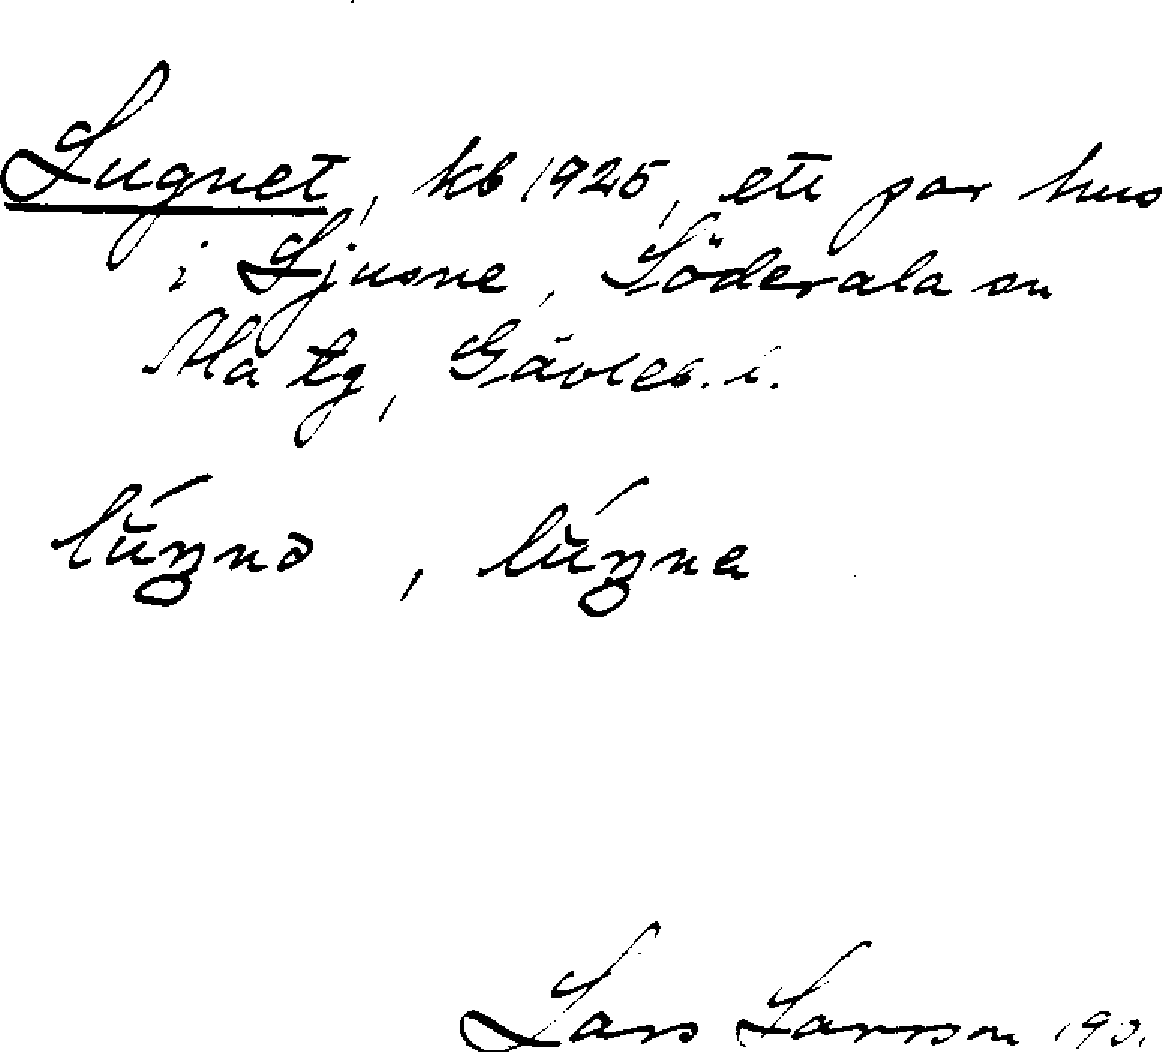 Lugnet, kb 1925, ett par hus
i Ljusne, Söderala sn
Ala tg, Gävleb. l.
lúŋnə, lúŋna
Lars Larsson